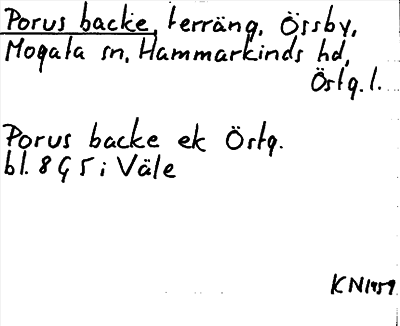 Porus backe, terräng, Örssby,
Mogata sn, Hammarkinds hd,
Östg. l.
Porus backe ek Östg.
bl. 8 G 5 i Väle
KN 1959